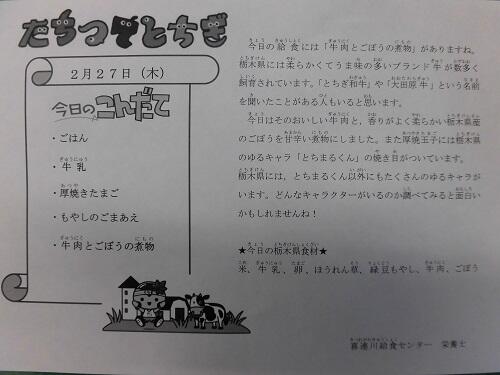 たちつてとちぎ
２月２７日（木）
今日のこんだて
・ごはん
・牛乳
・厚焼きたまご
・もやしのごまあえ
・牛肉とごぼうの煮物
今日の給食には「牛肉とごぼうの煮物」がありますね。
栃木県には柔らかくてうま味の多いブランド牛が数多く
飼育されています。「とちぎ和牛」や「大田原牛」という名前
を聞いたことがある人もいると思います。
今日はそのおいしい牛肉と、香りがよく柔らかい栃木県産
のごぼうを甘辛い煮物にしました。また厚焼玉子には栃木県
のゆるキャラ「とちまるくん」の焼き目がついています。
栃木県には、とちまるくん以外にもたくさんのゆるキャラが
います。どんなキャラクターがいるのか調べてみると面白い
かもしれませんね！
★今日の栃木県食材★
米、牛乳、卵、ほうれん草、緑豆もやし、牛肉、ごぼう
喜連川給食センター　栄養士